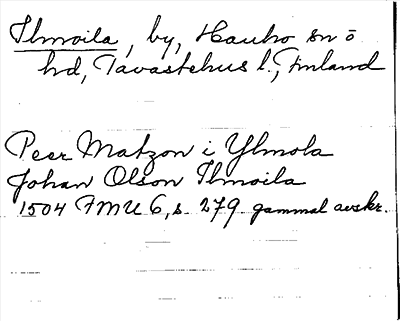 Ilmoila, by, Hauho sn o
hd, Tavastehus l., Finland
Peer Matzon i Ylmola
Johan Olson Ilmoila
1504 FMU 6, s. 279 gammal avskr.